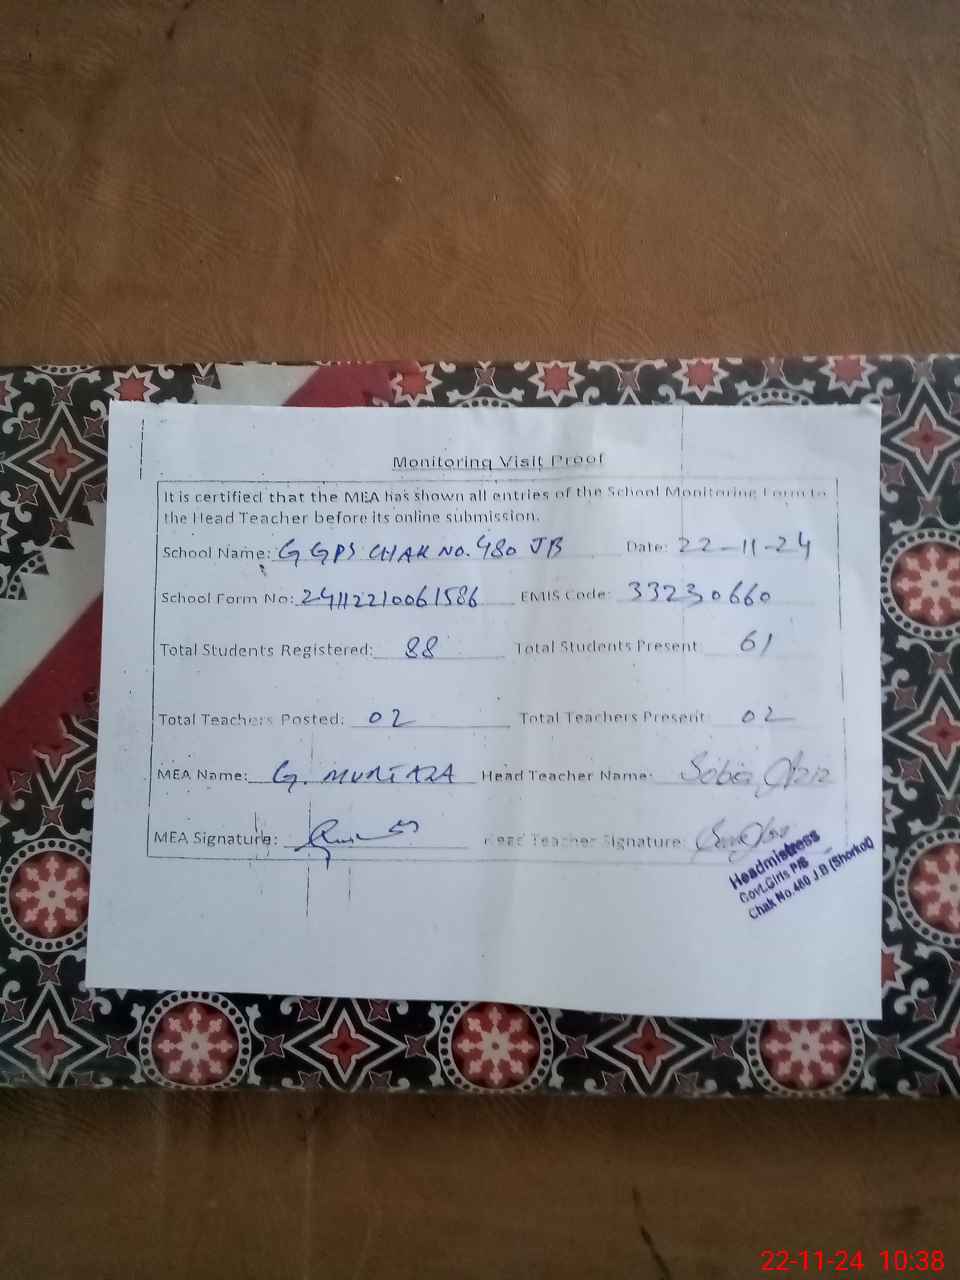 Monitoring Visit Proof
It is certified that the MEA has shown all entries of the School Monitoring Form to
the Head Teacher before its online submission.
School Name: G GPS CHAK NO. 480 JB Date: 22-11-24
School Form No: 24112210061586 EMIS Code: 33230660
Total Students Registered: 88 Total Students Present: 61
Total Teachers Posted: 02 Total Teachers Present: 02
MEA Name: G. MURTAZA Head Teacher Name: Sobia Aziz
MEA Signature: Head Teacher Signature:
Headmistress
Govt.Girls P/S
Chak No.480 J.B (Shorkot)
22-11-24 10:38